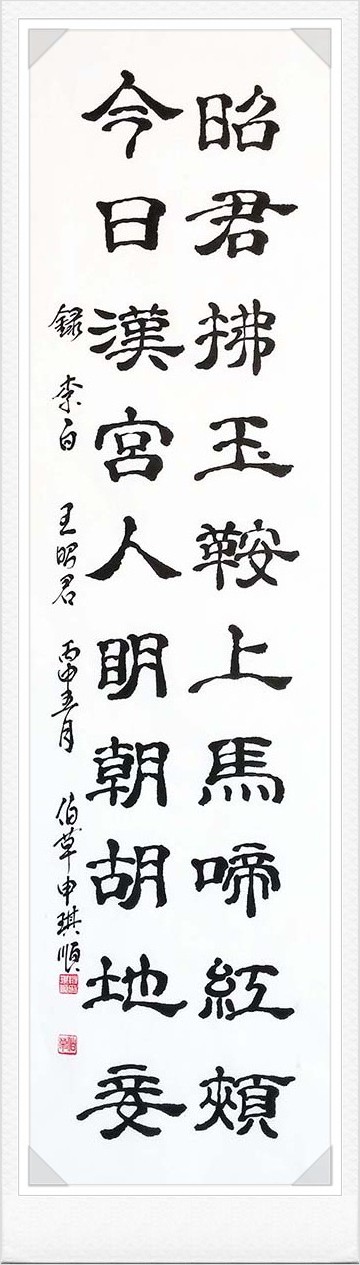 昭君拂玉鞍上馬啼紅頰
今日漢宮人明朝胡地妾
錄 李白 王昭君 丙申五月 伯草申琪順